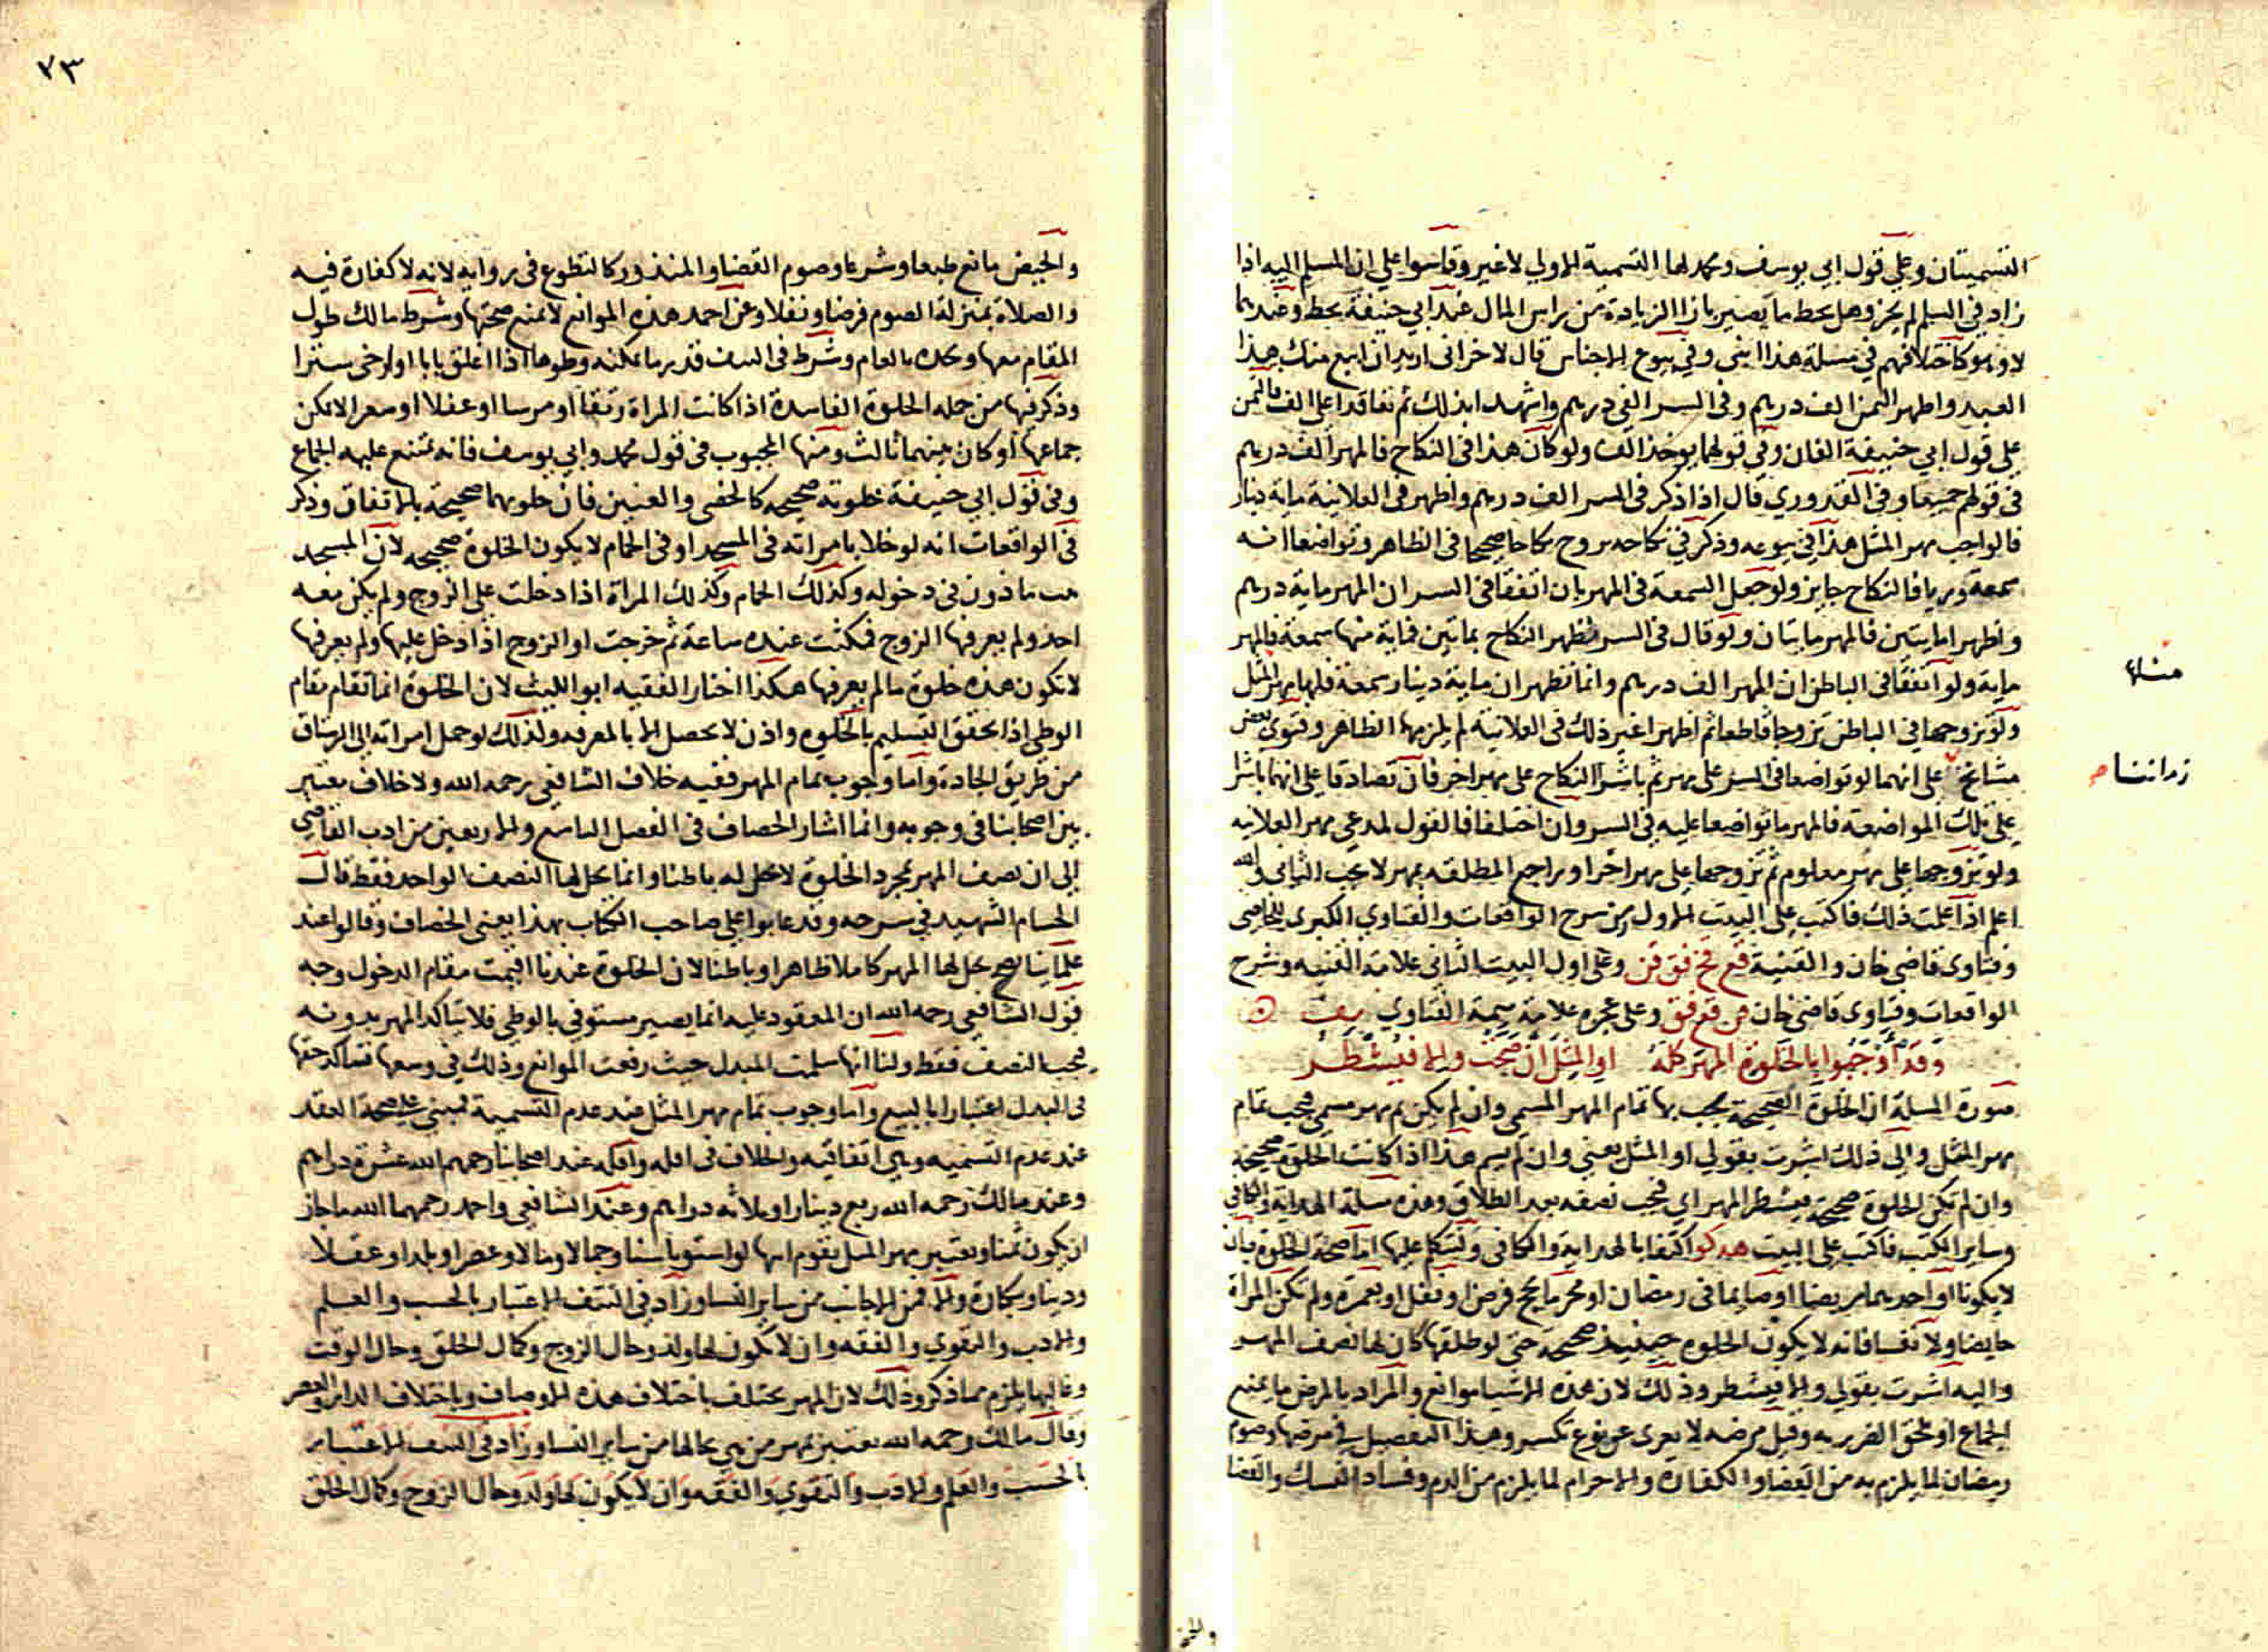 التسميتان وعلى قول ابي يوسف ومحمد لها التسمية الاولي لا غير وقاسوا علي ان المسلم اليه اذا
زاد في السلم لم يجز وهل يحط ما يصير بازا الزيادة من راس المال عند ابي حنيفة يحط وعندهما
لا وهو كاختلافهم في مسلة هذا ابني وفي بيوع الاجناس قال لاخر اني اريد ان ابيع منك هذا
العبد واظهر الثمن الف درهم وفي السر الفي درهم واشهد ابذلك ثم تعاقدا علي الف فالثمن
علي قول ابي حنيفة الفان وفي قولهما يوخذ الف ولو كان هذا في النكاح فالمهر الف درهم
في قولهم جميعا وفي القدوري قال اذا ذكر في السر الف درهم واظهر في العلانية ماية دينار
فالواجب مهر المثل هذا في بيوعه وذكر في نكاحه تزوج نكاحا صحيحا في الظاهر وتواضعا انه
سمعة وريا فالنكاح جايز ولو جعل السمعة في المهر بان اتفقا في السر ان المهر ماية درهم
واظهرا مايتين فالمهر مايتان ولو قال في السر نظهر النكاح بمايتين فماية منها سمعة فالمهر
ماية ولو اتفقا في الباطن ان المهر الف درهم وانما نظهر ان ماية دينار سمعة فلها مهر المثل
ولو تزوجها في الباطن تزوجا قاطعا ثم اظهرا غير ذلك في العلانية لم يلزمها الظاهر وفتوي بعض
مشايخ علي انهما لو تواضعا في السر علي مهر ثم باشرا النكاح علي مهر اخر فان تصادقا علي انهما باشرا
علي تلك المواضعة فالمهر ما تواضعا عليه في السر وان اختلفا فالقول لمدعي مهر العلانيه
ولو تزوجها علي مهر معلوم ثم تزوجها علي مهر اخر او راجع المطلقه بمهر لا يجب الثاني والله
اعلم اذا علمت ذلك فاكتب علي البيت الاول من شرح الواقعات والفتاوي الكبري للخاصي
وفتاوي قاضي خان والقنية قع فخ فق قن وعلي اول البيت الثاني علامة القنيه وشرح
الواقعات وفتاوي قاضي خان قن قع فق وعلي عجزه علامة يتيمة الفتاوي يت
وقد اوجبوا بالخلوة المهر كله او المثل ان صحت والا فيشطر
صورة المسلة ان الخلوة الصحيحة يجب بها تمام المهر المسمي وان لم يكن ثم مهر مسمي فيجب تمام
مهر المثل والي ذلك اشرت بقولي او المثل يعني وان لم يسم هذا اذا كانت الخلوة صحيحة
وان لم تكن الخلوة صحيحة فيشطر المهر اي فيجب نصفه بعد الطلاق وهذه مسلة الهداية والكافي
وساير الكتب فاكتب علي البيت هد كو اكتفا بالهداية والكافي ولنتكلم عليها اما صحة الخلوة بان
لا يكونا او احدهما مريضا او صايما في رمضان او محرما بحج فرض او نفل او بعمرة ولم تكن المراة
حايضا ولا نفسا فانه لا يكون الخلوه حينيذ صحيحة حتي لو طلقها كان لها نصف المهر
واليه اشرت بقولي والا فيشطر وذلك لان هذه الاشيا موانع والمراد بالمرض ما يمنع
الجماع او يلحق الضرر به وقيل مرضه لا يعري عن نوع تكسر وهذا التفصيل في مرضها وصوم
رمضان لما يلزم به من القضا والكفارة والاحرام لما يلزم من الدم وفساد النسك والقضا
والحيض
٧٣
والحيض مانع طبعا وشرعا وصوم القضا والمنذور كالتطوع في روايه لانه لا كفارة فيه
والصلاة بمنزلة الصوم فرضا ونفلا وعن احمد هذه الموانع لا تمنع صحتها وشرط مالك طول
المقام معها وحده بالعام وشرط في النتف قدر ما يمكنه وطوها اذا اغلق بابا او ارخي سترا
وذكر فيها من جمله الخلوة الفاسدة اذا كانت المراة رتقا او مرسا او عفلا او معرا لا يمكن
جماعها او كان بينهما ثالث ومنها المجبوب في قول محمد وابي يوسف فانه يمتنع عليه الجماع
وفي قول ابي حنيفة خلوته صحيحه كالخصي والعنين فان خلوتهما صحيحة بالاتفاق وذكر
في الواقعات انه لو خلا بامراته في المسجد او في الحمام لا يكون الخلوة صحيحه لان المسجد
ماذون في دخوله وكذلك الحمام وكذلك المراة اذا دخلت علي الزوج ولم يكن معه
احد ولم يعرفها الزوج فمكثت عنده ساعة ثم خرجت او الزوج اذا دخل عليها ولم يعرفها
لا تكون هذه خلوة ما لم يعرفها هكذا اختار الفقيه ابو الليث لان الخلوة انما تقام مقام
الوطي اذا تحقق التسليم بالخلوه واذن لا يحصل الا بالمعرفه ولذلك لو حمل امراته الي الرستاق
من طريق الجادة واما وجوب تمام المهر ففيه خلاف الشافعي رحمه الله ولا خلاف يعتبر
بين اصحابنا في وجوبه وانما اشار الخصاف في الفصل التاسع والاربعين من ادب القاضي
الي ان نصف المهر بمجرد الخلوة لا يحل له باطنا وانما يحل لها النصف الواحد فقط قال
الحسام الشهيد في شرحه وقد عابوا علي صاحب الكتاب بهذا يعني الخصاف وقالوا عند
علماينا يصح يحل لها المهر كاملا ظاهرا وباطنا لان الخلوة عندنا اقيمت مقام الدخول وجه
قول الشافعي رحمه الله ان المعقود عليه انما يصير مستوفي بالوطي فلا يتاكد المهر بدونه
فيجب النصف فقط ولنا انها سلمت المبدل حيث رفعت الموانع وذلك في وسعها فتاكد حقها
في البدل اعتبارا بالبيع واما وجوب تمام مهر المثل عند عدم التسمية فمبني علي صحة العقد
عند عدم التسميه وهي اتفاقيه والخلاف في اقله واقله عند اصحابنا رحمهم الله عشرة دراهم
وعند مالك رحمه الله ربع دينار او ثلاثه دراهم وعند الشافعي واحمد رحمهما الله ما جاز
ان يكون ثمنا ويعتبر مهر المثل بقوم ابيها لو استويا سنا وجمالا ومالا وعصرا وبلدا وعقلا
ودينا وبكارة والا فمن الاجانب من ساير النسا وزاد في النتف الاعتبار بالحسب والعلم
والادب والتقوي والفقه وان لا يكون لها ولد وحال الزوج وكمال الخلق وحال الوقت
وغالبها يلزم مما ذكر وذلك لان المهر يختلف باختلاف هذه الاوصاف وباختلاف الدار والعصر
وقال مالك رحمه الله يعتبر بمهر من هي بحالها من ساير النسا وزاد في النتف الاعتبار
بالحسب والعلم والادب والتقوي والفقه وان لا يكون لها ولد وحال الزوج وكمال الخلق